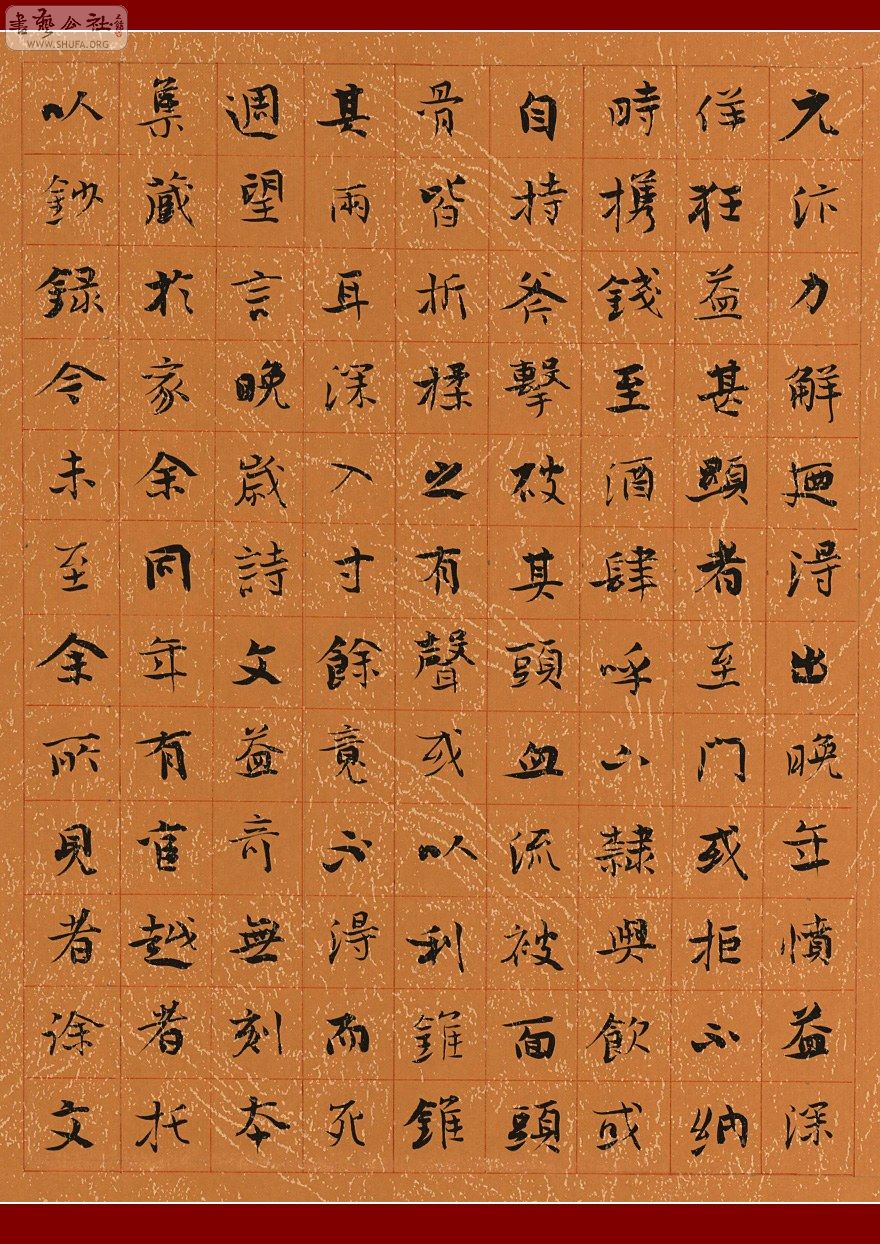 元汴力解廼得出晚年憤益深
佯狂益甚顕者至門或拒不納
時携錢至酒肆呼下隸與飲或
自持斧擊破其頭血流被面頭
骨皆折揉之有聲或以利錐錐
其兩耳深入寸餘竟不得而死
週望言晚歲詩文益奇無刻本
集藏於家余同年有官越者托
以鈔録今未至余所見者徐文
書藝公社
WWW.SHUFA.ORG